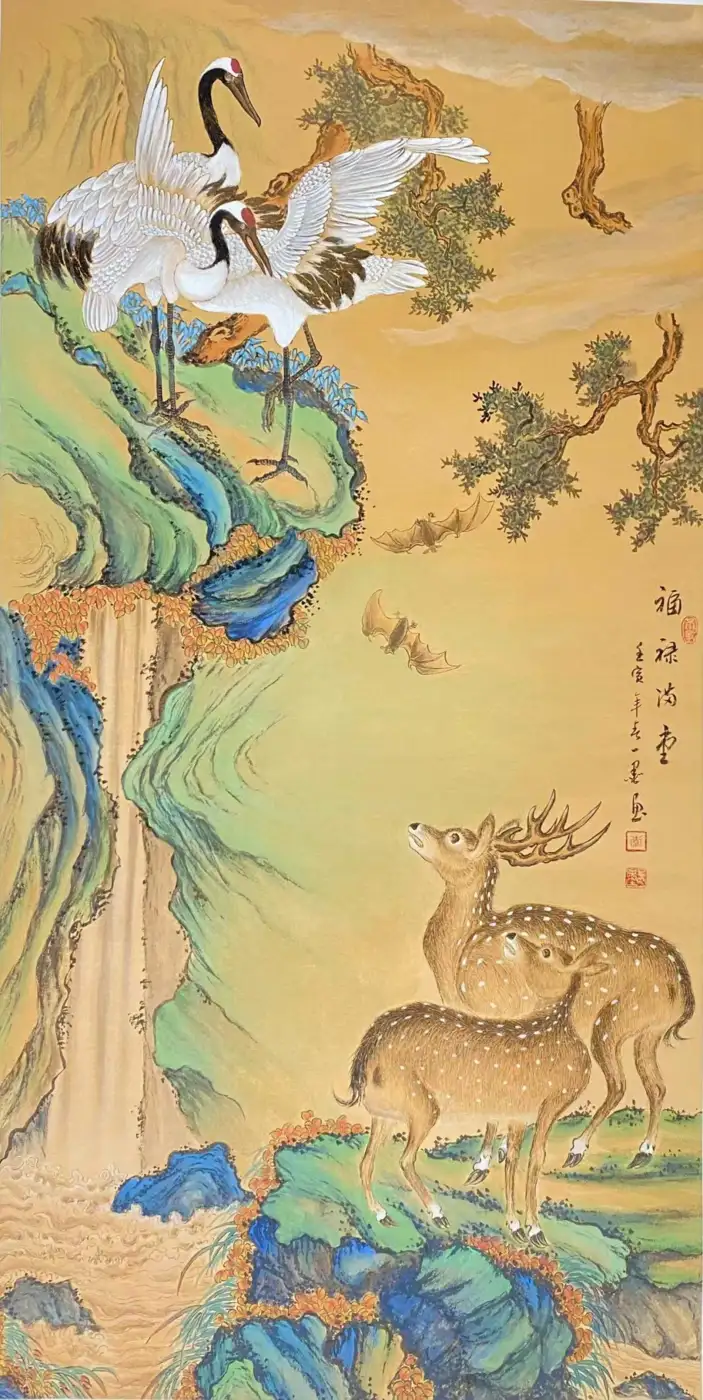 福禄满堂
壬寅年春一墨画